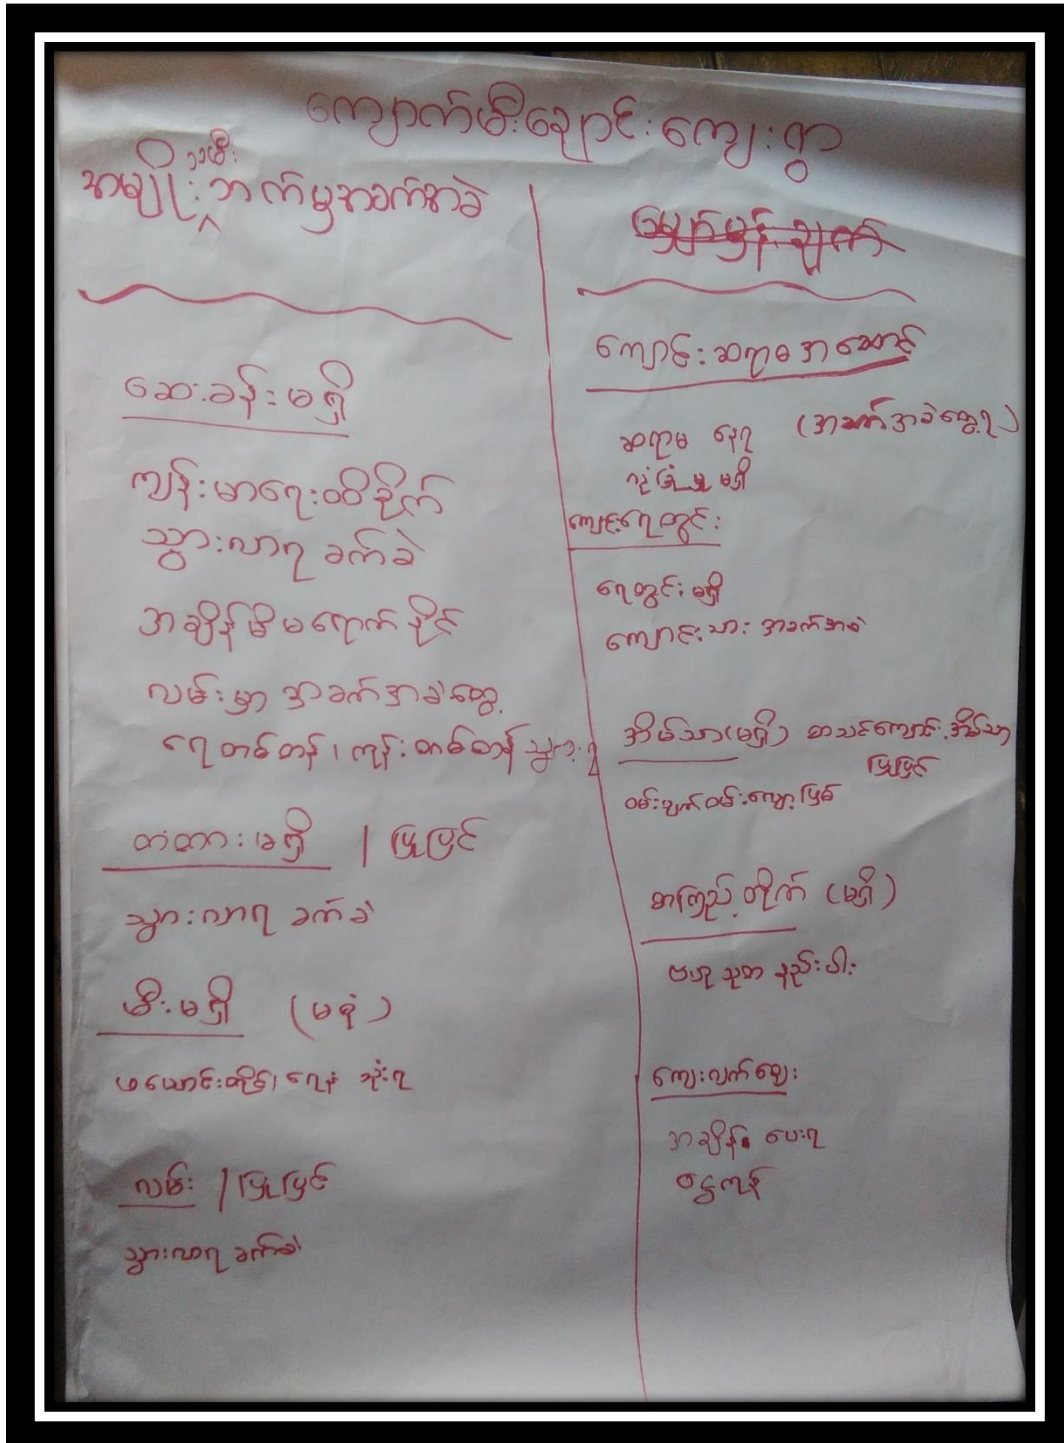 ကျောက်မီးချောင်းကျေးရွာ
အမျိုးသမီးဘက်မှအခက်အခဲ
ဆေးခန်းမရှိ
ကျန်းမာရေးထိခိုက်
သွားလာရ ခက်ခဲ
အချိန်မီမရောက်နိုင်
လမ်းမှာ အခက်အခဲတွေ့
ရေတစ်တန်၊ ကုန်းတစ်တန် သွားရ
တံတားမရှိ / ပြုပြင်
သွားလာရ ခက်ခဲ
မီးမရှိ (မစုံ)
ဖယောင်းတိုင်၊ ရေနံ သုံးရ
လမ်း / ပြုပြင်
သွားလာရ ခက်ခဲ
မျှော်မှန်းချက်
ကျောင်းဆရာမအဆောင်
ဆရာမ နေရ (အခက်အခဲတွေ့ရ)
လုံခြုံမှု မရှိ
ကျောင်းရေတွင်း
ရေတွင်း မရှိ
ကျောင်းသား အခက်အခဲ
အိမ်သာ(မရှိ) စာသင်ကျောင်းအိမ်သာ
ပြုပြင်
ဝမ်းပျက်ဝမ်းလျှောဖြစ်
စာကြည့်တိုက် (မရှိ)
ဗဟုသုတ နည်းပါး
ကျေးလက်ဈေး
အချိန် ပေးရ
ငွေကုန်